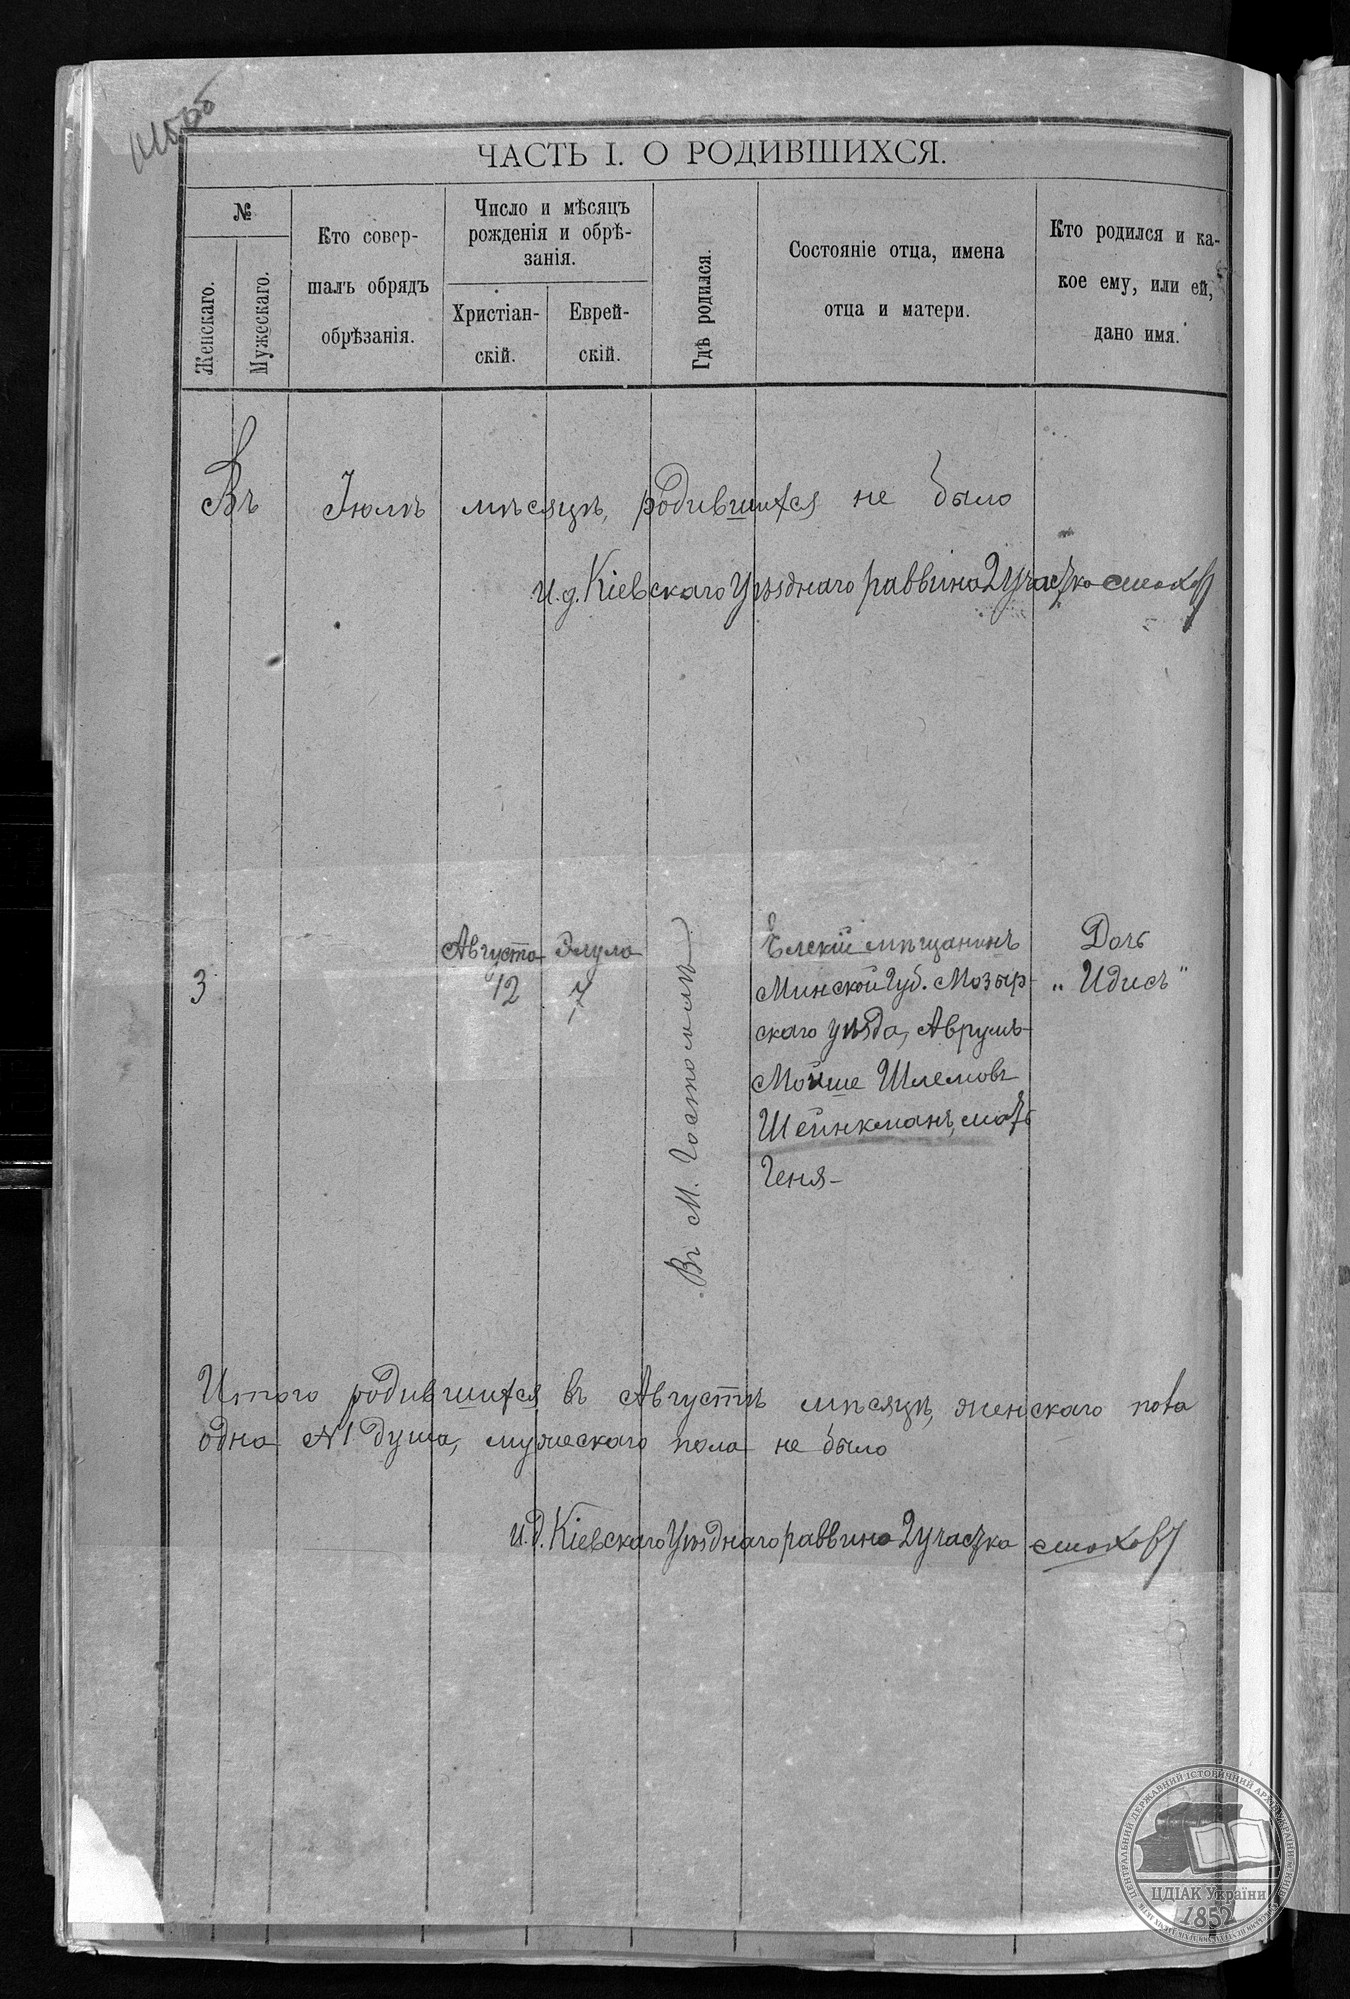 ЧАСТЬ I. О РОДИВШИХСЯ.
№
Женскаго.
Мужескаго.
Кто совер-
шалъ обрядъ
обрѣзанія.
Число и мѣсяцъ
рожденія и обрѣ-
занія.
Христіан-
скій.
Еврей-
скій.
Гдѣ родился.
Состояніе отца, имена
отца и матери.
Кто родился и ка-
кое ему, или ей,
дано имя.
Въ Іюлѣ мѣсяцѣ, родившихся не было
И. д. Кіевскаго Уѣзднаго раввина 2 участка
3
Августа
12
Элула
7
Въ М. Гостомлѣ
Елскій мѣщанинъ
Минской Губ. Мозыр-
скаго уѣзда, Аврумъ-
Мойше Шлемовъ
Шейнкманъ, мать
Геня-
Дочь
„ Идисъ "
Итого родившихся въ Августѣ мѣсяцѣ, женскаго пола
одна №1 душа, мужескаго пола не было
И. д. Кіевскаго Уѣзднаго раввина 2 участка
ЦЕНТРАЛЬНИЙ ДЕРЖАВНИЙ ІСТОРИЧНИЙ АРХІВ УКРАЇНИ, М. КИЇВ
ЦДІАК України
1852